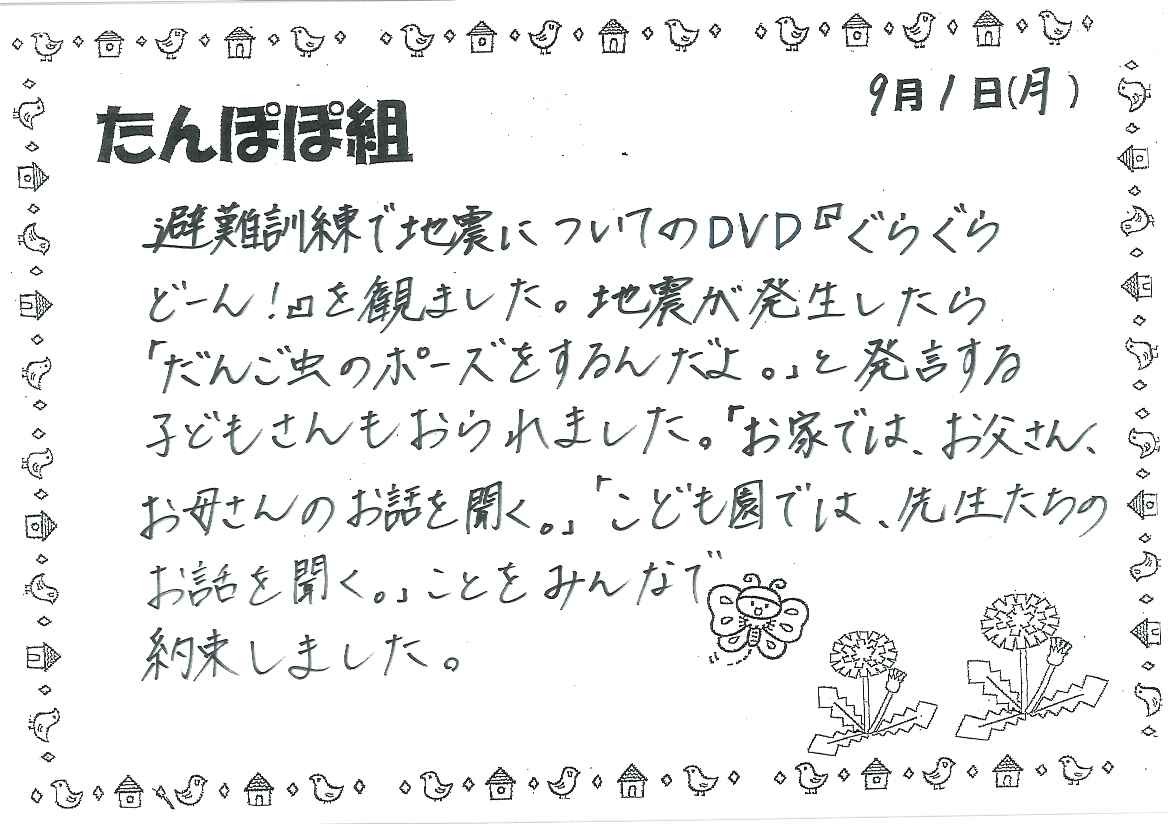 9月1日(月)
たんぽぽ組
避難訓練で地震についてのDVD『ぐらぐら
どーん！』を観ました。地震が発生したら
「だんご虫のポーズをするんだよ。」と発言する
子どもさんもおられました。「お家では、お父さん、
お母さんのお話を聞く。」「こども園では、先生たちの
お話を聞く。」ことをみんなで
約束しました。